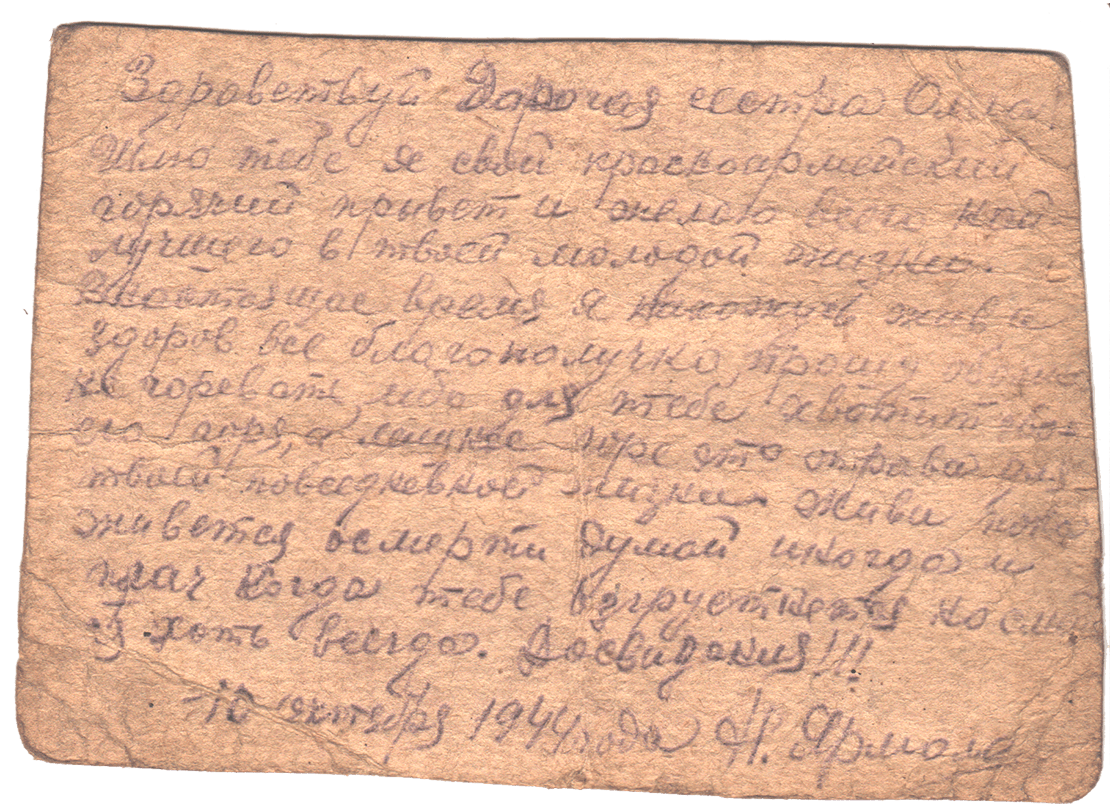 Здровствуй Дорогая сестра Ольга.
Шлю тебе я свой красноармейский
горячий привет и желаю всего най
лучшего в твоей молодой жизни.
Внастоящее время я нахожусь жив и
здоров все благополучно, прошу тебя
не горевать, ибо для тебя хватит од-
ого горя, а лишнее горе это отрава для
твоей повседневной жизни живи пока
живется осмерти думай иногда и
плач когда тебе взгрустнется
хоть всегда. Досвидания!!!
10 октября 1944 года Н. Ярмола